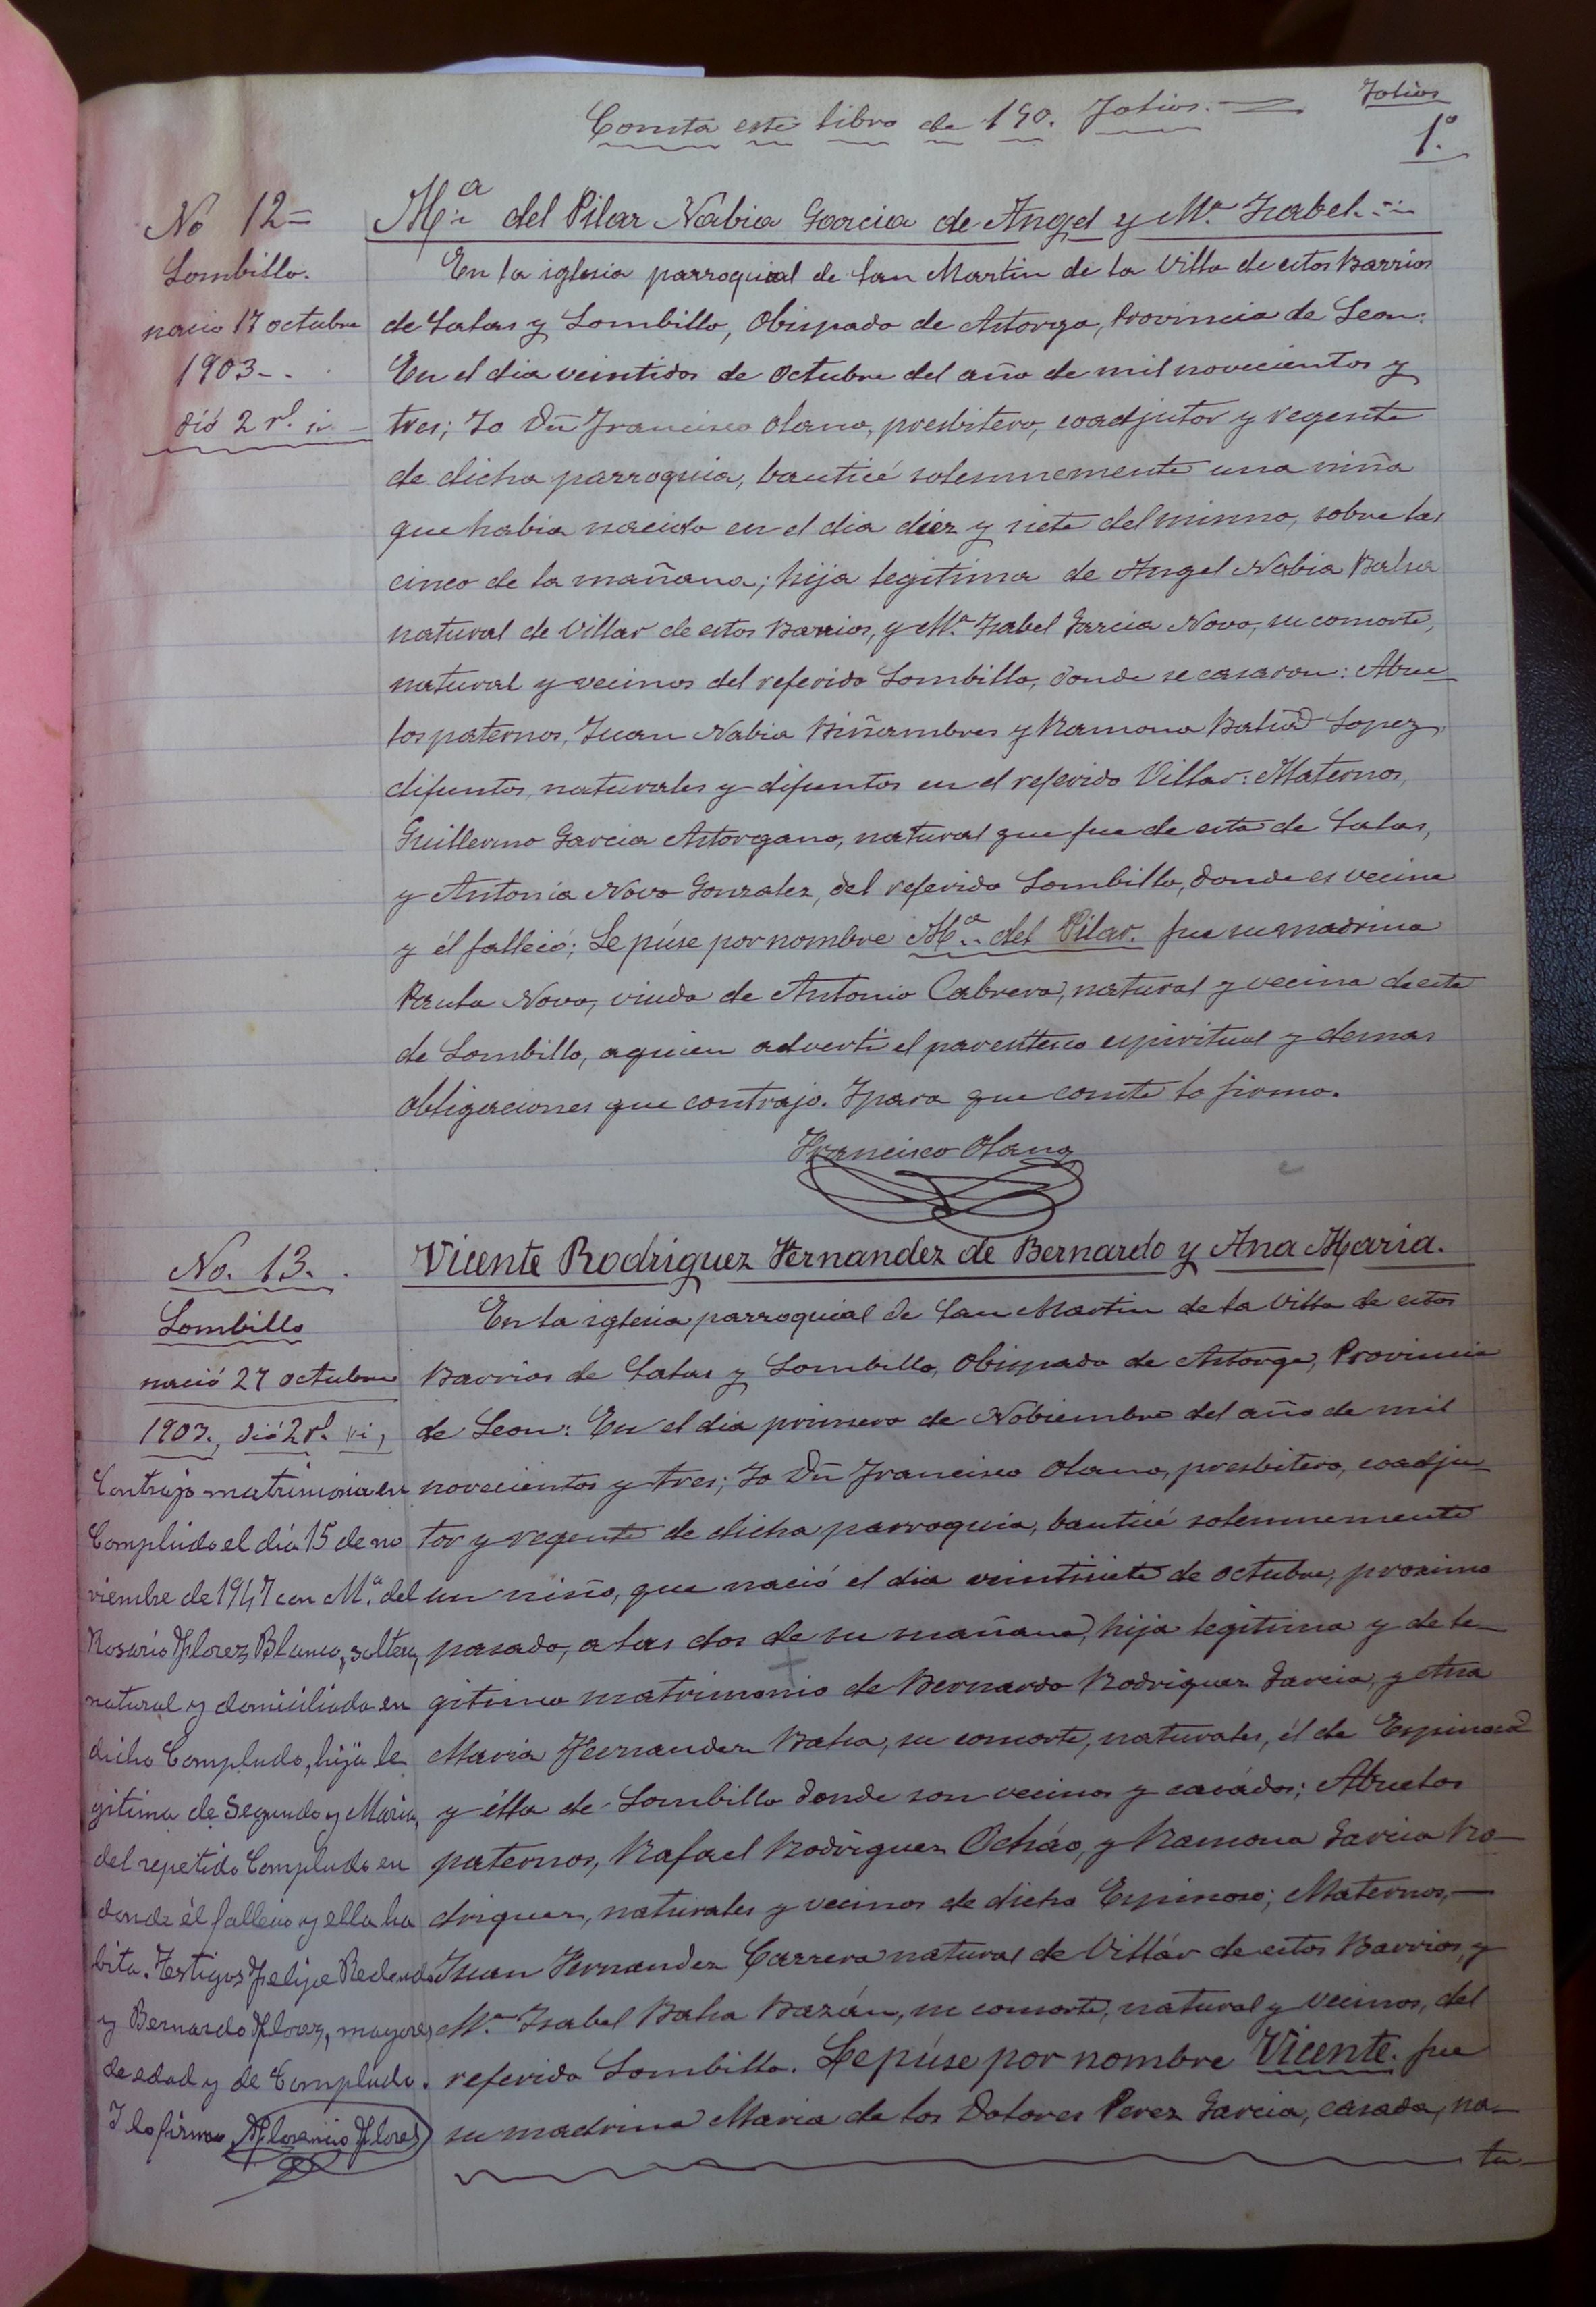 Consta este libro de 190. Folios.
Folios
1º.
No 12=
Lombillo.
nacio 17 octubre
1903-.
dió 2 rl.
Mª del Pilar Nabia Garcia de Angel y Mª Isabel.
En la iglesia parroquial de San Martin de la Villa de estos Barrios
de Salas y Lombillo, Obispado de Astorga, Provincia de Leon:
En el dia veintidos de Octubre del año de mil novecientos y
tres; Yo Dn Francisco Olano, presbitero, coadjutor y regente
de dicha parroquia, bauticé solemnemente una niña
que habia nacido en el dia diez y siete del mismo, sobre las
cinco de la mañana; hija legitima de Angel Nabia Balsa
natural de Villar de estos Barrios, y Mª Isabel Garcia Novo, su consorte,
natural y vecinos del referido Lombillo, donde se casaron: Abue-
los paternos, Juan Nabia Viñambres y Ramona Balsa Lopez,
difuntos, naturales y difuntos en el referido Villar: Maternos,
Guillermo Garcia Astorgano, natural que fue de esta de Salas,
y Antonia Novo Gonzalez, del referido Lombillo, donde es vecina
y él falleció; Le púse por nombre Mª del Pilar. fue su madrina
Paula Novo, viuda de Antonio Cabrera, natural y vecina de este
de Lombillo, a quien adverti el parentesco espiritual y demas
obligaciones que contrajo. Y para que conste lo firmo.
Francisco Olano
No. 13.
Lombillo
nació 27 octubre
1903., dió 2 rl.
Contrajo matrimonio en
Compludo el día 15 de no
viembre de 1947 con Mª. del
Rosario Florez Blanco, soltera,
natural y domiciliada en
dicho Compludo, hija le
gitima de Segundo y Maria,
del repetido Compludo en
donde él fallecio y ella ha
bita. Testigos Felipe Redondo
y Bernardo Florez, mayores
de edad y de Compludo.
Y lo firmo Florencio Florez
Vicente Rodriguez Fernandez de Bernardo y Ana Maria.
En la iglesia parroquial de San Martin de la Villa de estos
Barrios de Salas y Lombillo, Obispado de Astorga, Provincia
de Leon: En el dia primero de Nobiembre del año de mil
novecientos y tres; Yo Dn Francisco Olano, presbitero, coadju-
tor y regente de dicha parroquia, bauticé solemnemente
un niño, que nació el dia veintisiete de octubre, proximo
pasado, a las dos de su mañana, hijo legitimo y de le-
gitimo matrimonio de Bernardo Rodriguez Garcia, y Ana
Maria Fernandez Balsa, su consorte, naturales, él de Espinoso
y élla de Lombillo donde son vecinos y casádos; Abuelos
paternos, Rafael Rodriguez Ocháo, y Ramona Garcia Ro-
driguez, naturales y vecinos de dicho Espinoso; Maternos,-
Juan Fernandez Carrera natural de Villár de estos Barrios, y
Mª Isabel Balsa Bazán, su consorte, natural y vecinos, del
referido Lombillo. Le púse por nombre Vicente. fue
su madrina Maria de los Dolores Perez Garcia, casada, na-
tu-